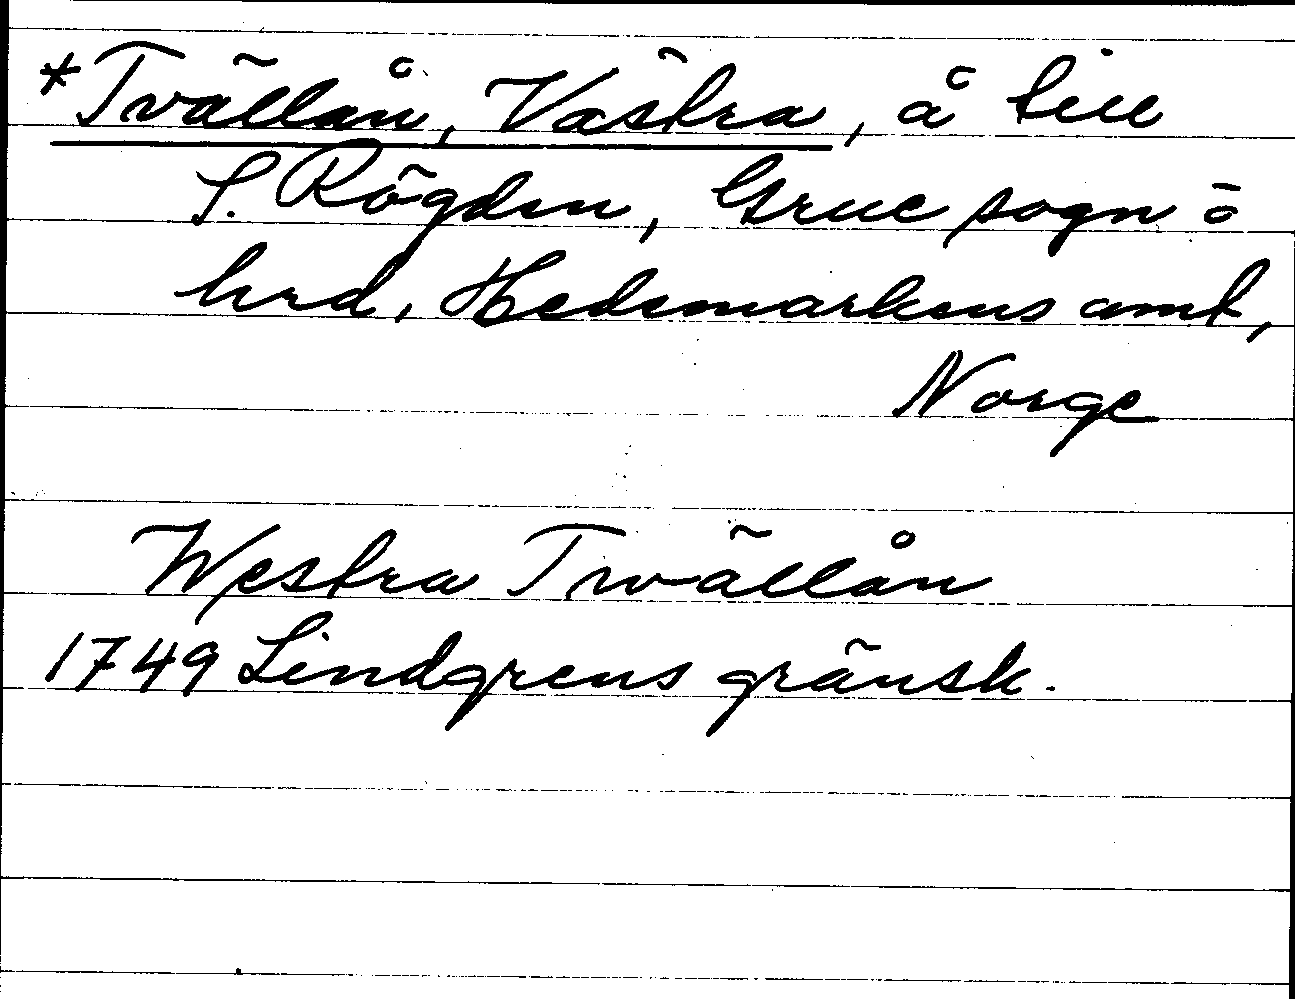 *Tvällån, Västra, å till
S. Rögden, Grue sogn o
hrd, Hedemarkens amt,
Norge
Westra Twällån
1749 Lindgrens gränsk.